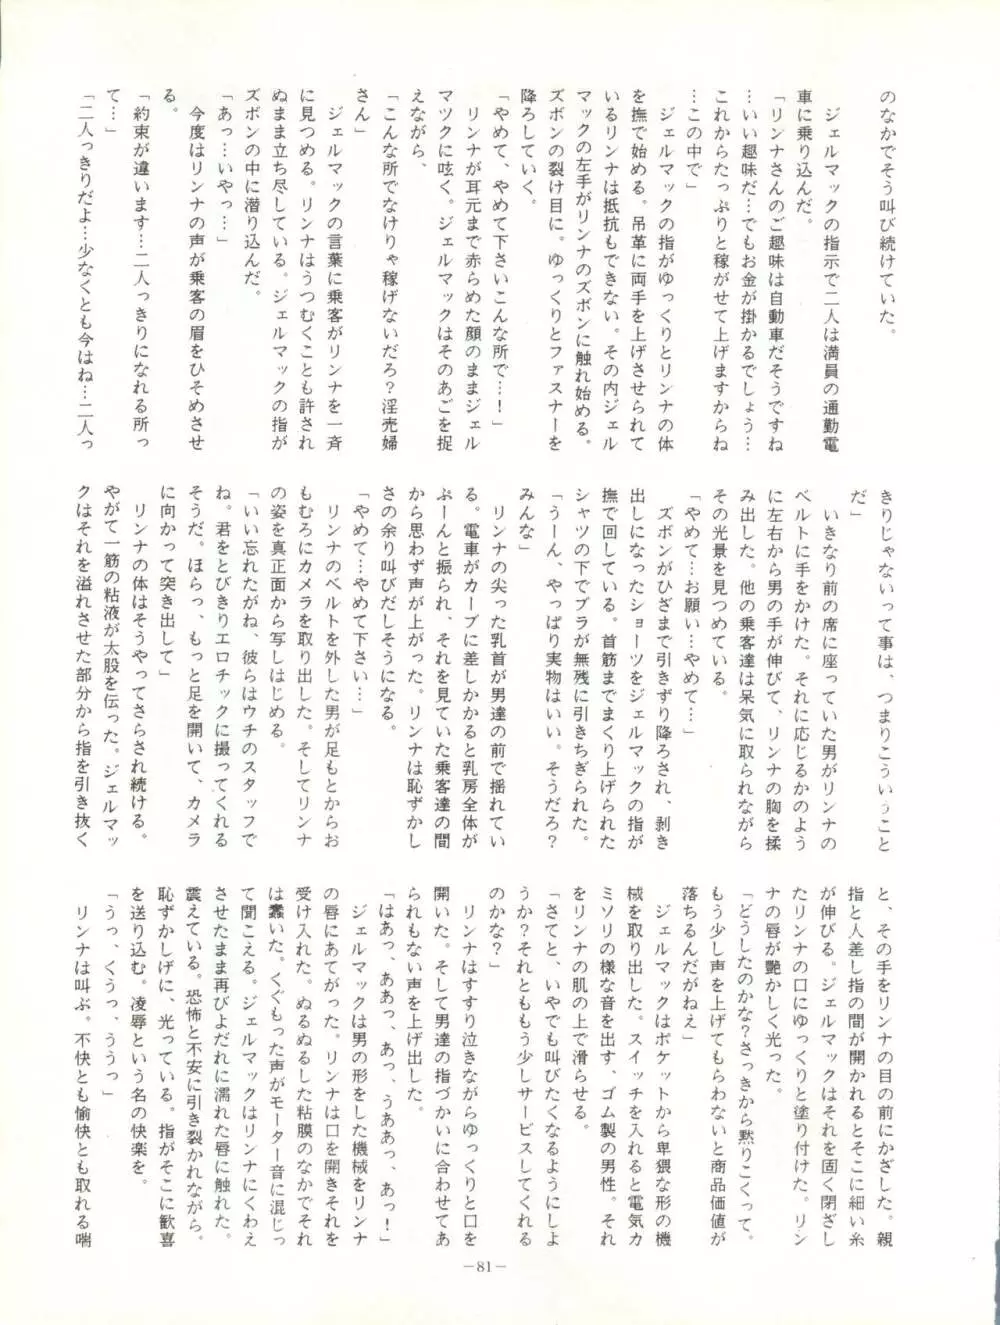 のなかでそう叫び続けていた。
ジェルマックの指示で二人は満員の通勤電
車に乗り込んだ。
「リンナさんのご趣味は自動車だそうですね
…いい趣味だ…でもお金が掛かるでしょう…
これからたっぷりと稼がせて上げますからね
…この中で」
ジェルマックの指がゆっくりとリンナの体
を撫で始める。吊革に両手を上げさせられて
いるリンナは抵抗もできない。その内ジェル
マックの左手がリンナのズボンに触れ始める。
ズボンの裂け目に。ゆっくりとファスナーを
降ろしていく。
「やめて、やめて下さいこんな所で…！」
リンナが耳元まで赤らめた顔のままジェル
マツクに呟く。ジェルマックはそのあごを捉
えながら、
「こんな所でなけりゃ稼げないだろ？淫売婦
さん」
ジェルマックの言葉に乗客がリンナを一斉
に見つめる。リンナはうつむくことも許され
ぬまま立ち尽している。ジェルマックの指が
ズボンの中に潜り込んだ。
「あっ…いやっ…」
今度はリンナの声が乗客の眉をひそめさせ
る。
「約束が違います…二人っきりになれる所っ
て…」
「二人っきりだよ…少なくとも今はね…二人っ
きりじゃないって事は、つまりこういうこと
だ」
いきなり前の席に座っていた男がリンナの
ベルトに手をかけた。それに応じるかのよう
に左右から男の手が伸びて、リンナの胸を揉
み出した。他の乗客達は呆気に取られながら
その光景を見つめている。
「やめて…お願い…やめて…」
ズボンがひざまで引きずり降ろされ、剥き
出しになったショーツをジェルマックの指が
撫で回している。首筋までまくり上げられた
シャツの下でブラが無残に引きちぎられた。
「うーん、やっぱり実物はいい。そうだろ？
みんな」
リンナの尖った乳首が男達の前で揺れてい
る。電車がカーブに差しかかると乳房全体が
ぷーんと振られ、それを見ていた乗客達の間
から思わず声が上がった。リンナは恥ずかし
さの余り叫びだしそうになる。
「やめて…やめて下さい…」
リンナのベルトを外した男が足もとからお
もむろにカメラを取り出した。そしてリンナ
の姿を真正面から写しはじめる。
「いい忘れたがね、彼らはウチのスタッフで
ね。君をとびきりエロチックに撮ってくれる
そうだ。ほらっ、もっと足を開いて、カメラ
に向かって突き出して」
リンナの体はそうやってさらされ続ける。
やがて一筋の粘液が太股を伝った。ジェルマッ
クはそれを溢れさせた部分から指を引き抜く
と、その手をリンナの目の前にかざした。親
指と人差し指の間が開かれるとそこに細い糸
が伸びる。ジェルマックはそれを固く閉ざし
たリンナの口にゆっくりと塗り付けた。リン
ナの唇が艶かしく光った。
「どうしたのかな？さっきから黙りこくって。
もう少し声を上げてもらわないと商品価値が
落ちるんだがねえ」
ジェルマックはポケットから卑猥な形の機
械を取り出した。スイッチを入れると電気カ
ミソリの様な音を出す、ゴム製の男性。それ
をリンナの肌の上で滑らせる。
「さてと、いやでも叫びたくなるようにしよ
うか？それとももう少しサービスしてくれる
のかな？」
リンナはすすり泣きながらゆっくりと口を
開いた。そして男達の指づかいに合わせてあ
られもない声を上げ出した。
「はあっ、ああっ、あっ、うああっ、あっ！」
ジェルマックは男の形をした機械をリンナ
の唇にあてがった。リンナは口を開きそれを
受け入れた。ぬるぬるした粘膜のなかでそれ
は蠢いた。くぐもった声がモーター音に混じっ
て聞こえる。ジェルマックはリンナにくわえ
させたまま再びよだれに濡れた唇に触れた。
震えている。恐怖と不安に引き裂かれながら。
恥ずかしげに、光っている。指がそこに歓喜
を送り込む。凌辱という名の快楽を。
「うっ、くうっ、ううっ」
リンナは叫ぶ。不快とも愉快とも取れる喘
－81－